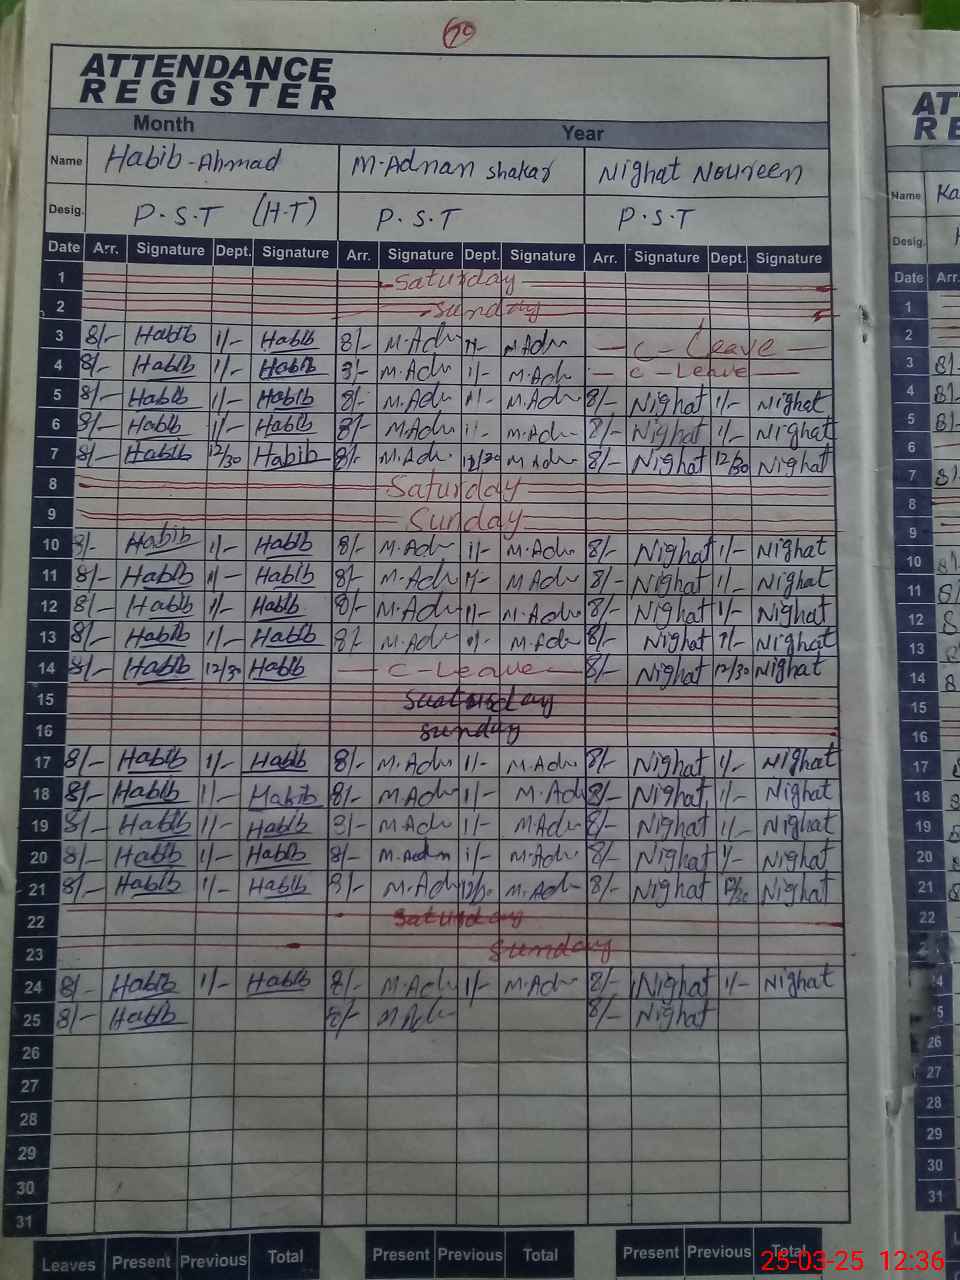 70
ATTENDANCE
REGISTER
Month Year
Name Habib-Ahmad M-Adnan shakar Nighat Noureen
Desig. P.S.T (H-T) P.S.T P.S.T
Date Arr. Signature Dept. Signature Arr. Signature Dept. Signature Arr. Signature Dept. Signature
1 Saturday
2 Sunday
3 8/- Habib 1/- Habib 8/- M.Adn 1/- M.Adn C-Leave
4 8/- Habib 1/- Habib 8/- M.Adn 1/- M.Adn C-Leave
5 8/- Habib 1/- Habib 8/- M.Adn 1/- M.Adn 8/- Nighat 1/- Nighat
6 8/- Habib 1/- Habib 8/- M.Adn 1/- M.Adn 8/- Nighat 1/- Nighat
7 8/- Habib 12/30 Habib 8/- M.Adn 12/30 M.Adn 8/- Nighat 12/30 Nighat
8 Saturday
9 Sunday
10 8/- Habib 1/- Habib 8/- M.Adn 1/- M.Adn 8/- Nighat 1/- Nighat
11 8/- Habib 1/- Habib 8/- M.Adn 1/- M.Adn 8/- Nighat 1/- Nighat
12 8/- Habib 1/- Habib 8/- M.Adn 1/- M.Adn 8/- Nighat 1/- Nighat
13 8/- Habib 1/- Habib 8/- M.Adn 1/- M.Adn 8/- Nighat 1/- Nighat
14 8/- Habib 12/30 Habib C-Leave 8/- Nighat 12/30 Nighat
15
16 sunday
17 8/- Habib 1/- Habib 8/- M.Adn 1/- M.Adn 8/- Nighat 1/- Nighat
18 8/- Habib 1/- Habib 8/- M.Adn 1/- M.Adn 8/- Nighat 1/- Nighat
19 8/- Habib 1/- Habib 8/- M.Adn 1/- M.Adn 8/- Nighat 1/- Nighat
20 8/- Habib 1/- Habib 8/- M.Adnn 1/- M.Adn 8/- Nighat 1/- Nighat
21 8/- Habib 1/- Habib 8/- M.Adn 12/30 M.Adn 8/- Nighat 12/30 Nighat
22 Saturday
23 Sunday
24 8/- Habib 1/- Habib 8/- M.Adn 1/- M.Adn 8/- Nighat 1/- Nighat
25 8/- Habib 8/- M.Adn 8/- Nighat
26
27
28
29
30
31
Leaves Present Previous Total Present Previous Total Present Previous Total
AT
RE
Name Ka
Desig.
Date Arr.
1
2
3 8/-
4 8/-
5 8/-
6
7 8/-
8
9
10 8/-
11 8/
12 8
13
14 8
15
16
17
18
19
20
21
22
26
27
28
29
30
31
25-03-25 12:36